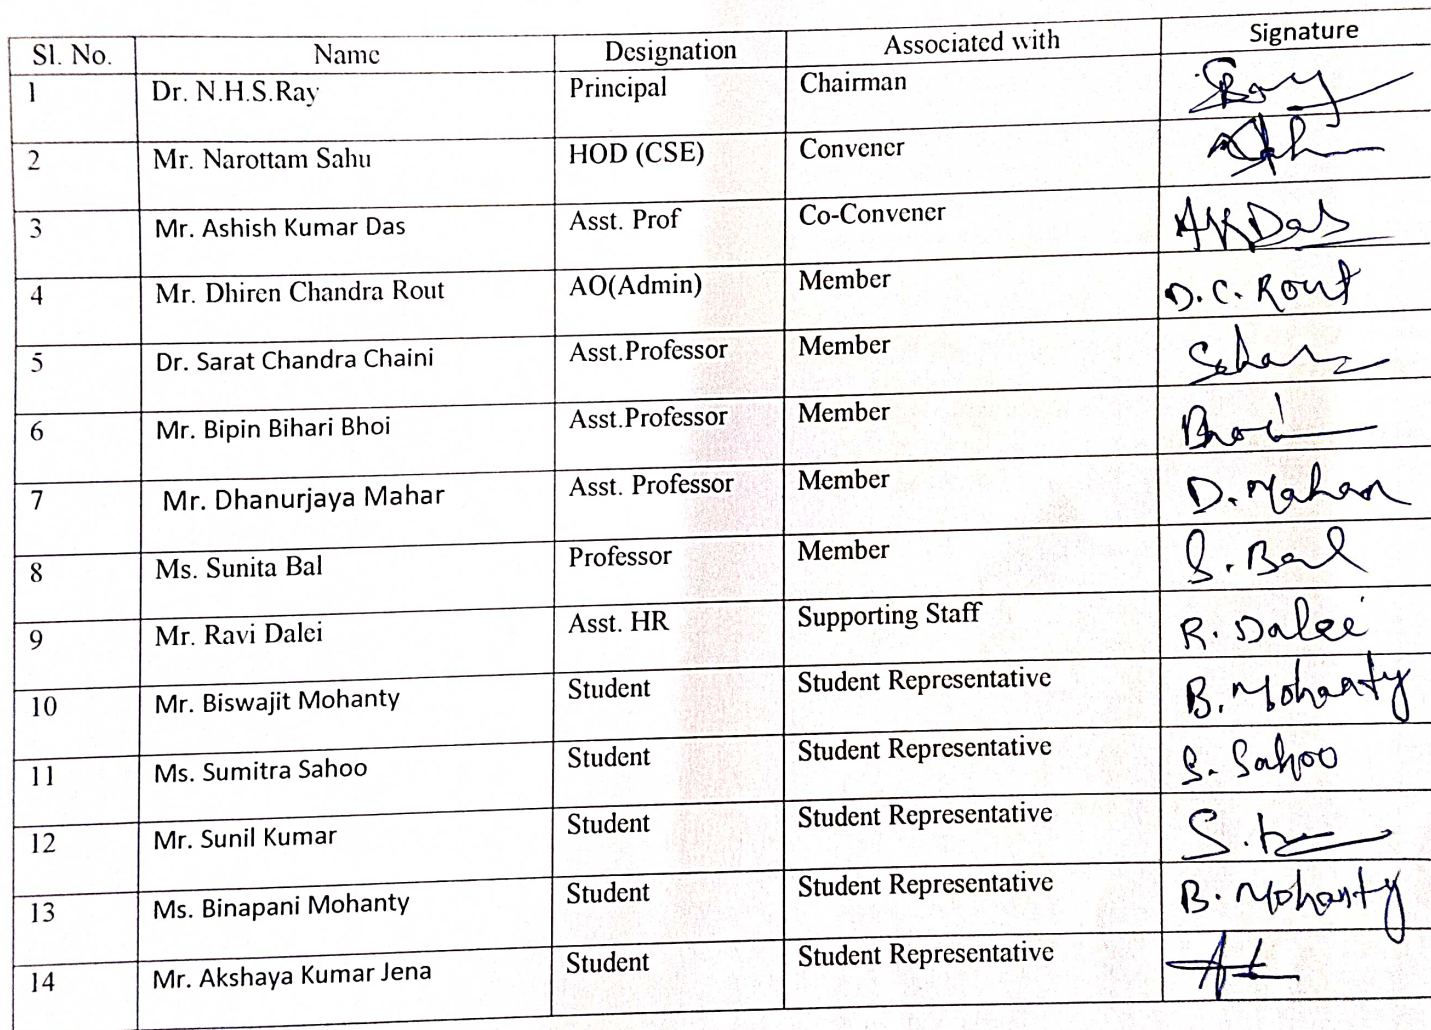 Sl. No. Name Designation Associated with Signature
1 Dr. N.H.S.Ray Principal Chairman Ray
2 Mr. Narottam Sahu HOD (CSE) Convener
3 Mr. Ashish Kumar Das Asst. Prof Co-Convener AKDas
4 Mr. Dhiren Chandra Rout AO(Admin) Member D.C. Rout
5 Dr. Sarat Chandra Chaini Asst.Professor Member
6 Mr. Bipin Bihari Bhoi Asst.Professor Member Bhoi
7 Mr. Dhanurjaya Mahar Asst. Professor Member D. Mahar
8 Ms. Sunita Bal Professor Member S. Bal
9 Mr. Ravi Dalei Asst. HR Supporting Staff R. Dalei
10 Mr. Biswajit Mohanty Student Student Representative B. Mohanty
11 Ms. Sumitra Sahoo Student Student Representative S. Sahoo
12 Mr. Sunil Kumar Student Student Representative
13 Ms. Binapani Mohanty Student Student Representative B. Mohanty
14 Mr. Akshaya Kumar Jena Student Student Representative